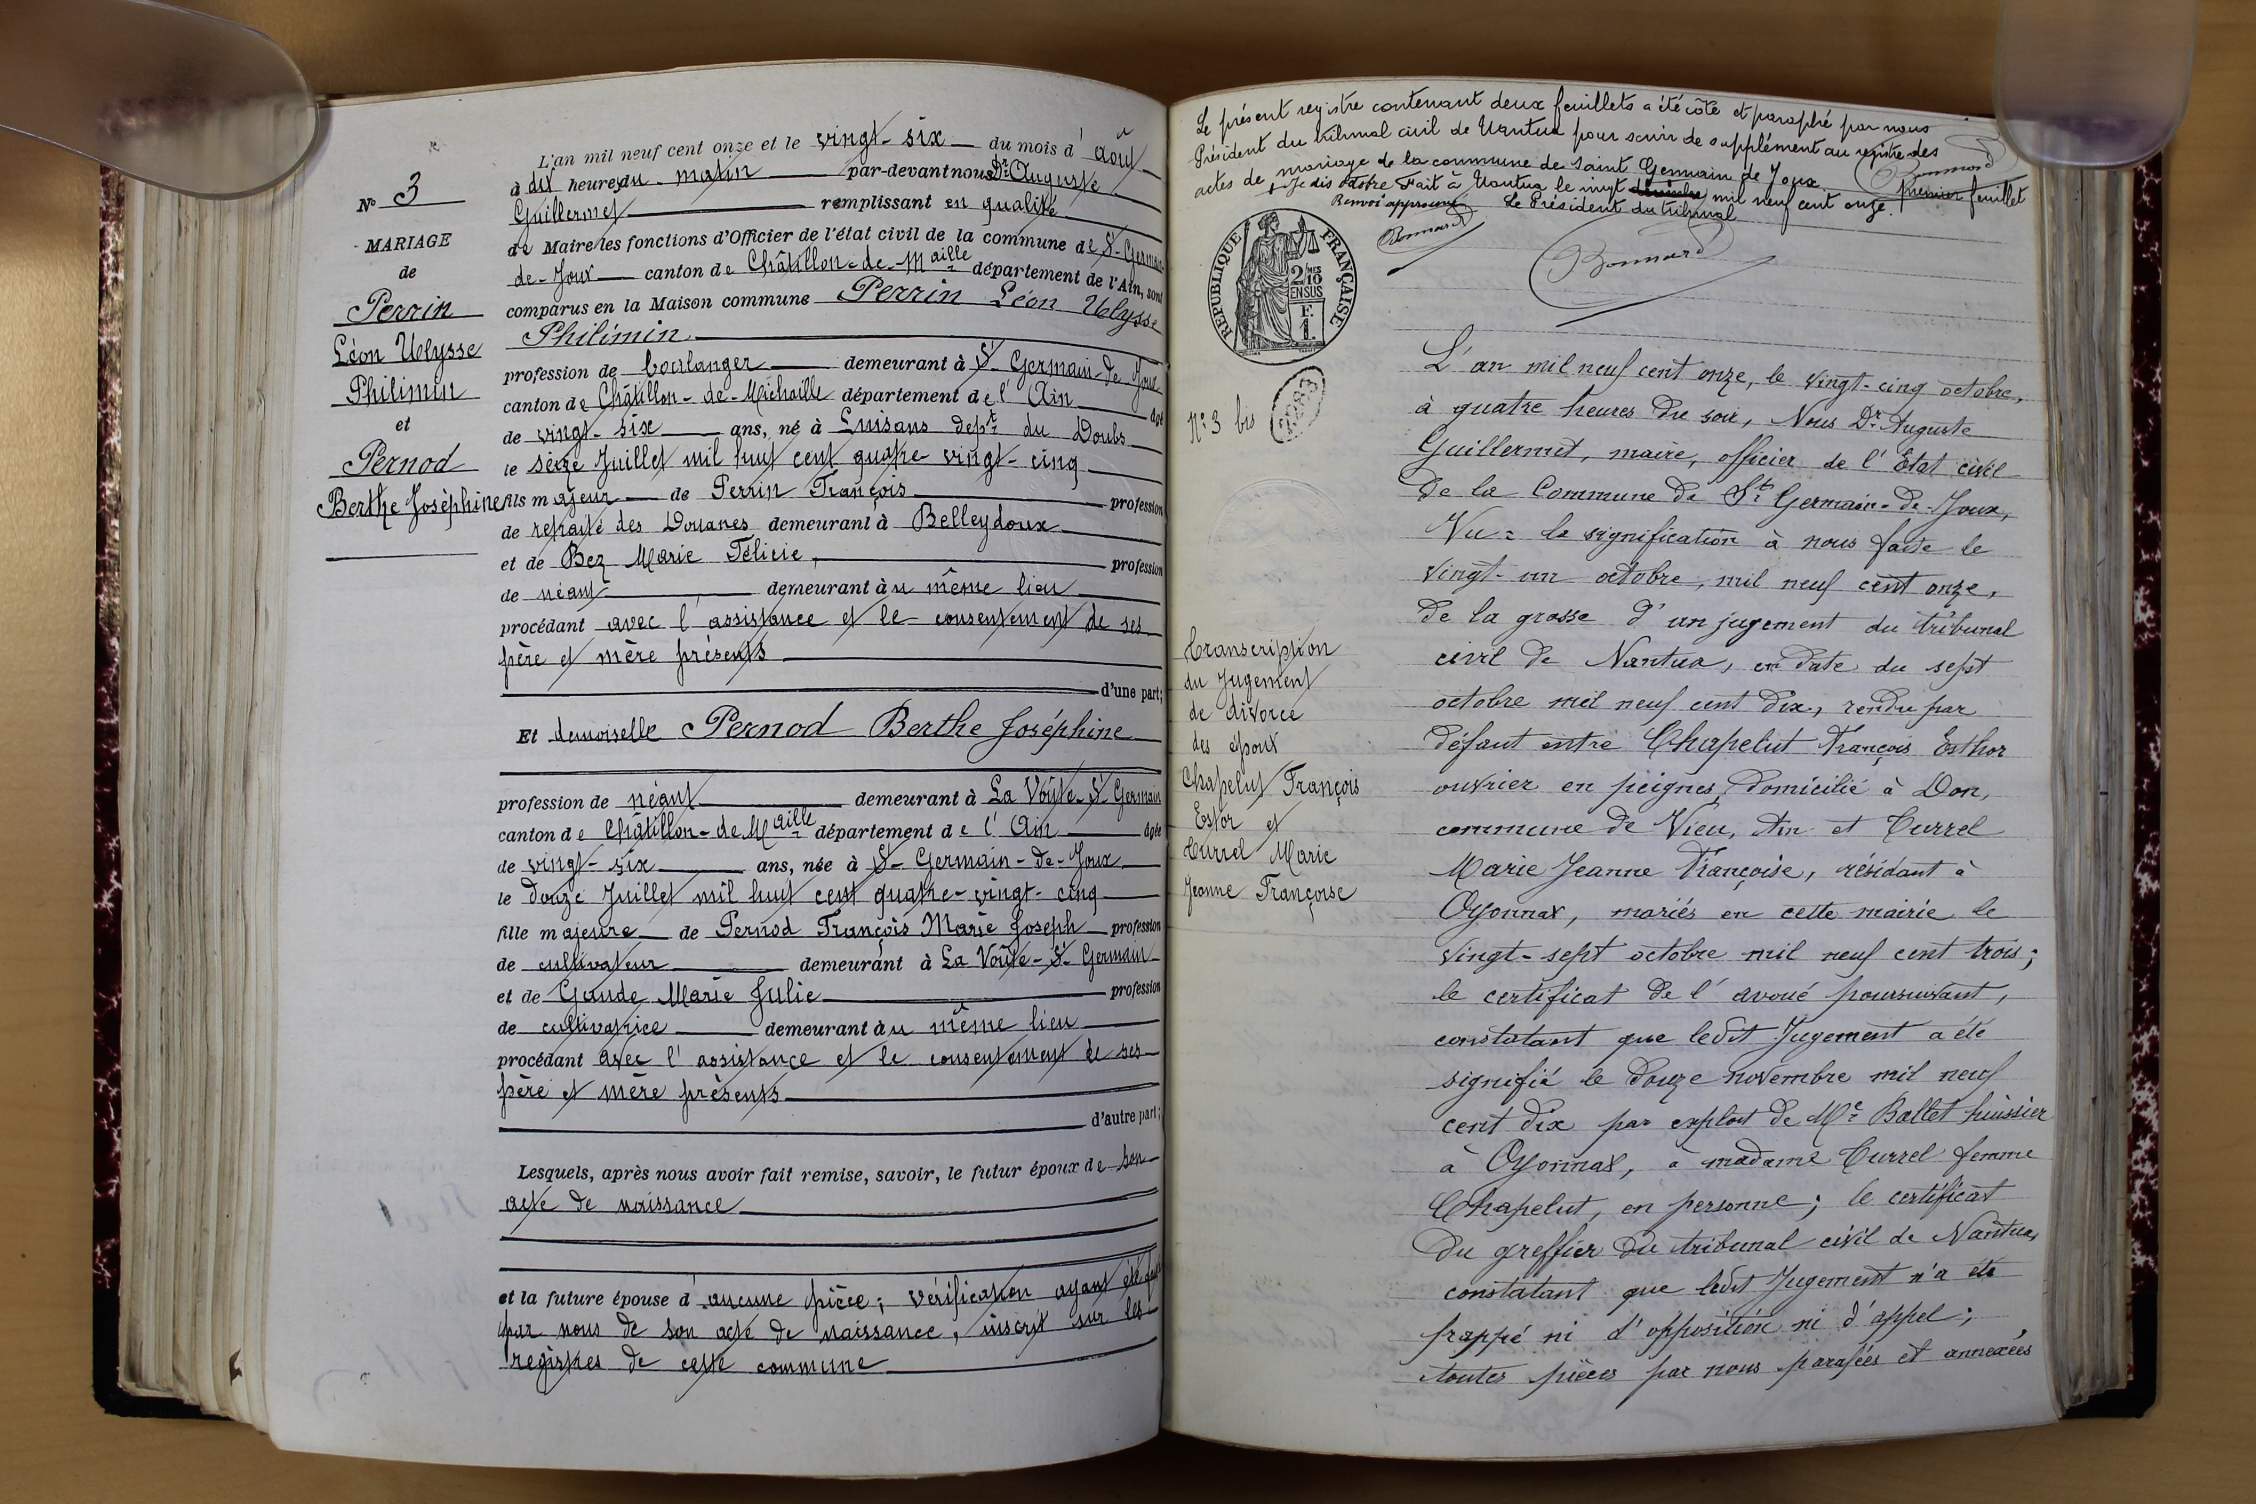 L'an mil neuf cent onze et le vingt-six du mois d'août
à dix heures du matin par-devant nous Dr Auguste
Guillermet remplissant en qualité
de Maire les fonctions d'Officier de l'état civil de la commune de St Germain
de-Joux canton de Châtillon-de-Maille département de l'Ain, sont
comparus en la Maison commune Perrin Léon Ulysse
Philimin
profession de boulanger demeurant à St Germain-de Joux
canton de Châtillon-de-Michaille département de l'Ain âgé
de vingt-six ans, né à Luisans dept du Doubs
le seize Juillet mil huit cent quatre-vingt-cinq
fils majeur de Perrin François profession
de retraité des Douanes demeurant à Belleydoux
et de Bez Marie Félicie, profession
de néant demeurant au même lieu
procédant avec l'assistance et le consentement de ses
père et mère présents
d'une part;
Et demoiselle Pernod Berthe Joséphine
profession de néant demeurant à La Voûte-St Germain
canton de Châtillon-de Maille département de l'Ain âgée
de vingt-six ans, née à St-Germain-de-Joux
le douze Juillet mil huit cent quatre-vingt-cinq
fille majeure de Pernod François Marie Joseph profession
de cultivateur demeurant à La Voûte-St Germain
et de Gaude Marie Julie profession
de cultivatrice demeurant au même lieu
procédant avec l'assistance et le consentement de ses
père et mère présents
d'autre part;
Lesquels, après nous avoir fait remise, savoir, le futur époux de son
acte de naissance
et la future épouse d'aucune pièce; vérification ayant été faite
par nous de son acte de naissance, inscrit sur les
registres de cette commune
No 3
MARIAGE
de
Perrin
Léon Ulysse
Philimin
et
Pernod
Berthe Joséphine
Le présent registre contenant deux feuillets a été coté et paraphé par nous
Président du tribunal civil de Nantua pour servir de supplément au registre des
actes de mariage de la commune de Saint Germain de Joux
+ Je dis octobre Fait à Nantua le vingt décembre mil neuf cent onze. premier feuillet
Renvoi approuvé Le Président du tribunal
Bonnard
Bonnard
Bonnard
RÉPUBLIQUE FRANÇAISE
2/MES
10
EN SUS
F.
1.
No 3 bis
Transcription
du Jugement
de divorce
des époux
Chapelut François
Estor et
Turrel Marie
Jeanne Françoise
L'an mil neuf cent onze, le vingt-cinq octobre,
à quatre heures du soir, Nous Dr Auguste
Guillermet, maire, officier de l'Etat civil
de la Commune de St Germain-de-Joux,
Vu = la signification à nous faite le
vingt-un octobre, mil neuf cent onze,
de la grosse d'un jugement du tribunal
civil de Nantua, en date du sept
octobre mil neuf cent dix, rendu par
défaut entre Chapelut François Esthor
ouvrier en peignes, domicilié à Don,
commune de Vieu, Ain et Turrel
Marie Jeanne Françoise, résidant à
Oyonnax, mariés en cette mairie le
vingt-sept octobre mil neuf cent trois;
le certificat de l'avoué poursuivant,
constatant que ledit Jugement a été
signifié le douze novembre mil neuf
cent dix par exploit de Me Ballet huissier
à Oyonnax, à madame Turrel femme
Chapelut, en personne; le certificat
du greffier du tribunal civil de Nantua,
constatant que ledit Jugement n'a été
frappé ni d'opposition ni d'appel;
toutes pièces par nous parafées et annexées